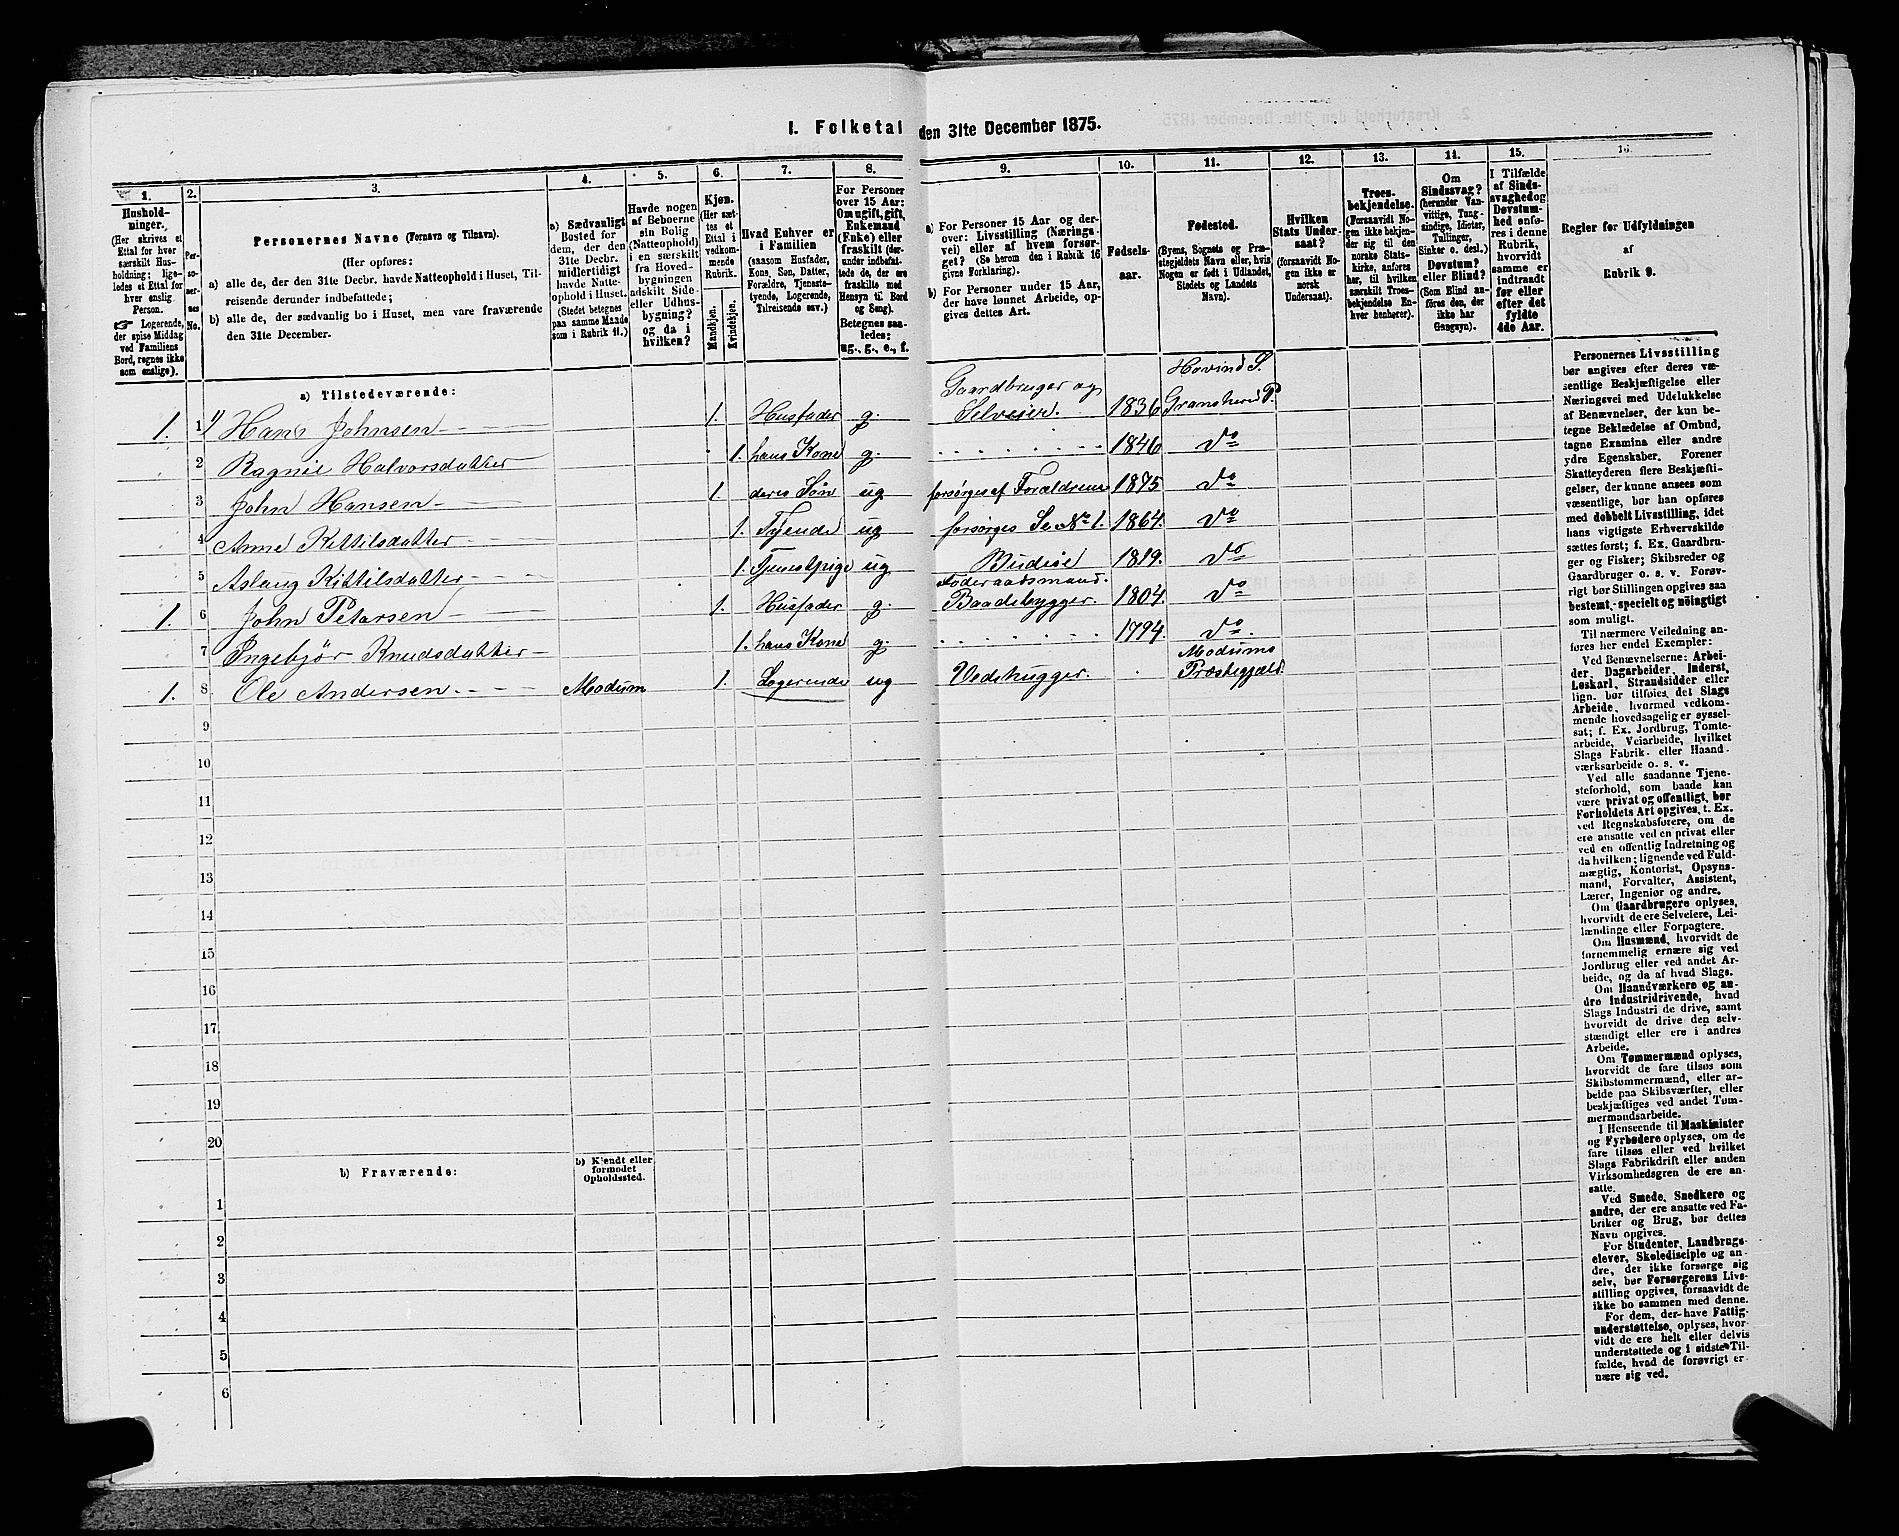 I. Folketal den 31te December 1875.
1. 2. 3. 4. 5. 6. 7. 8. 9. 10. 11. 12. 13. 14. 15. 16.
Hushold-
ninger.
(Her skrives et
Ettal for hver
særskilt Hus-
holdning; lige-
ledes et Ettal for
hver enslig
Person.
☞ Logerende,
der spise Middag
ved Familiens
Bord, regnes ikke
som enslige).
Per-
so-
ner-
nes
No.
Personernes Navne (Fornavn og Tilnavn).
(Her opføres:
a) alle de, der den 31te Decbr. havde Natteophold i Huset, Til-
reisende derunder indbefattede;
b) alle de, der sædvanlig bo i Huset, men vare fraværende
den 31te December.
a) Sædvanligt
Bosted for
dem, der den
31te Decbr.
midlertidigt
havde Natte-
ophold i Huset.
(Stedet betegnes
paa samme Maade
som i Rubrik 11.)
Havde nogen
af Beboerne
sin Bolig
(Natteophold)
i en særskilt
fra Hoved-
bygningen
adskilt Side-
eller Udhus-
bygning?
og da i
hvilken?
Kjøn.
(Her sæt-
tes et
Ettal i
vedkom-
mende
Rubrik.
Mandkjøn.
Kvindekjøn.
Hvad Enhver er
i Familien
(saasom Husfader,
Kone, Søn, Datter,
Forældre, Tjeneste-
tyende, Logerende,
Tilreisende osv.)
For Personer
over 15 Aar:
Om ugift, gift,
Enkemand
(Enke) eller
fraskilt (der-
under indbefat-
tede de, der ere
fraskilte med
Hensyn til Bord
og Seng).
Betegnes saa-
ledes:
ug., g., e., f.
a) For Personer 15 Aar og der-
over: Livsstilling (Nærings-
vei) eller af hvem forsør-
get? (Se herom den i Rubrik 16
givne Forklaring).
b) For Personer under 15 Aar,
der have lønnet Arbeide, op-
gives dettes Art.
Fødsels-
aar.
Fødested.
(Byens, Sognets og Præ-
stegjeldets Navn eller, hvis
Nogen er født i Udlandet,
Stedets og Landets
Navn).
Hvilken
Stats Under-
saat?
(forsaavidt No-
gen ikke er
norsk
Undersaat).
Troes-
bekjendelse.
(Forsaavidt No-
gen ikke bekjen-
der sig til den
norske Stats-
kirke, anføres
her, til hvilken
særskilt Troes-
bekjendelse En-
hver henhører).
Om
Sindssvag?
(herunder Van-
vittige, Tung-
sindige, Idioter,
Tullinger,
Sinker o. desl.)
Døvstum?
eller Blind?
(Som Blind an-
føres den, der
ikke har
Gangsyn).
I Tilfælde
af Sinds-
svaghed og
Døvstum-
hed anfø-
res i denne
Rubrik,
hvorvidt
samme er
indtraadt
før eller
efter det
fyldte
4de Aar.
Regler for Udfyldningen
af
Rubrik 9.
a) Tilstedeværende:
1. 1 1) Hans Johnsen 1. Husfader g. Gaardbruger og Selveier. 1836 Hovind S. Gransherred P.
2 Ragnil Halvorsdatter 1. hans Kone g. 1846 Do
3 John Hansen 1. deres Søn ug forsørges af Forældrene 1875 Do
4 Anne Kittilsdatter 1. Tyende ug forsørges Se No 1. 1864. Do
5 Aslaug Kittilsdatter 1. Tjenestpige ug Budeie 1819. Do
1. 6 John Petersen 1. Husfader g. Føderaadsmand. Baadebygger. 1804. Do
7 Ingebjør Knudsdatter 1. hans Kone g. 1794. Do.
1. 8 Ole Andersen. Modum 1. Logerende ug Vedhugger. Modums Præstegjeld
9
10
11
12
13
14
15
16
17
18
19
20
b) Fraværende:
b) Kjendt eller
formodet
Opholdssted.
1
2
3
4
5
6
Personernes Livsstilling
bør angives efter deres væ-
sentlige Beskjæftigelse eller
Næringsvei med Udelukkelse
af Benævnelser, der kun be-
tegne Beklædelse af Ombud,
tagne Examina eller andre
ydre Egenskaber. Forener
Skatteyderen flere Beskjæfti-
gelser, der kunne ansees som
væsentlige, bør han opføres
med dobbelt Livsstilling, idet
hans vigtigste Erhvervskilde
sættes først; f. Ex. Gaardbru-
ger og Fisker; Skibsreder og
Gaardbruger o. s. v. Forøv-
rigt bør Stillingen opgives saa
bestemt, specielt og nöiagtigt
som muligt.
Til nærmere Veiledning an-
føres her endel Exempler:
Ved Benævnelserne: Arbei-
der, Dagarbeider, Inderst,
Løskarl, Strandsidder eller
lign. bør tilføies det Slags
Arbeide, hvormed vedkom-
mende hovedsagelig er syssel-
sat; f. Ex. Jordbrug, Tomte-
arbeide, Veiarbeide, hvilket
Slags Fabrik- eller Haand-
værksarbeide o. s. v.
Ved alle saadanne Tjene-
steforhold, som baade kan
være privat og offentligt, bør
Forholdets Art opgives, t. Ex.
ved Regnskabsførere, om de
ere ansatte ved en privat eller
ved en offentlig Indretning og
da hvilken; lignende ved Fuld-
mægtig, Kontorist, Opsyns-
mand, Forvalter, Assistent,
Lærer, Ingeniør og andre.
Om Gaardbrugere oplyses,
hvorvidt de ere Selveiere, Lei-
lændinge eller Forpagtere.
Om Husmænd, hvorvidt de
fornemmelig ernære sig ved
Jordbrug eller ved andet Ar-
beide, og da af hvad Slags.
Om Haandværkere og an-
dre Industridrivende, hvad
Slags Industri de drive, samt
hvorvidt de drive den selv-
stændigt eller ere i andres
Arbeide.
Om Tømmermænd oplyses,
hvorvidt de fare tilsøs som
Skibstømmermænd, eller ar-
beide paa Skibsværfter, eller
beskjæftiges ved andet Tøm-
mermandsarbeide.
I Henseende til Maskinister
og Fyrbødere oplyses, om de
fare tilsøs eller ved hvilket
Slags Fabrikdrift eller anden
Virksomhedsgren de ere an-
satte.
Ved Smede, Snedkere og
andre, der ere ansatte ved Fa-
briker og Brug, bør dettes
Navn opgives.
For Studenter, Landbrugs-
elever, Skoledisciple og an-
dre, der ikke forsørge sig
selv, bør Forsørgerens Livs-
stilling opgives, forsaavidt de
ikke bo sammen med denne.
For dem, der have Fattig-
understøttelse, oplyses, hvor-
vidt de ere helt eller delvis
understøttede og i sidste Til-
fælde, hvad de forøvrigt er-
nære sig ved.